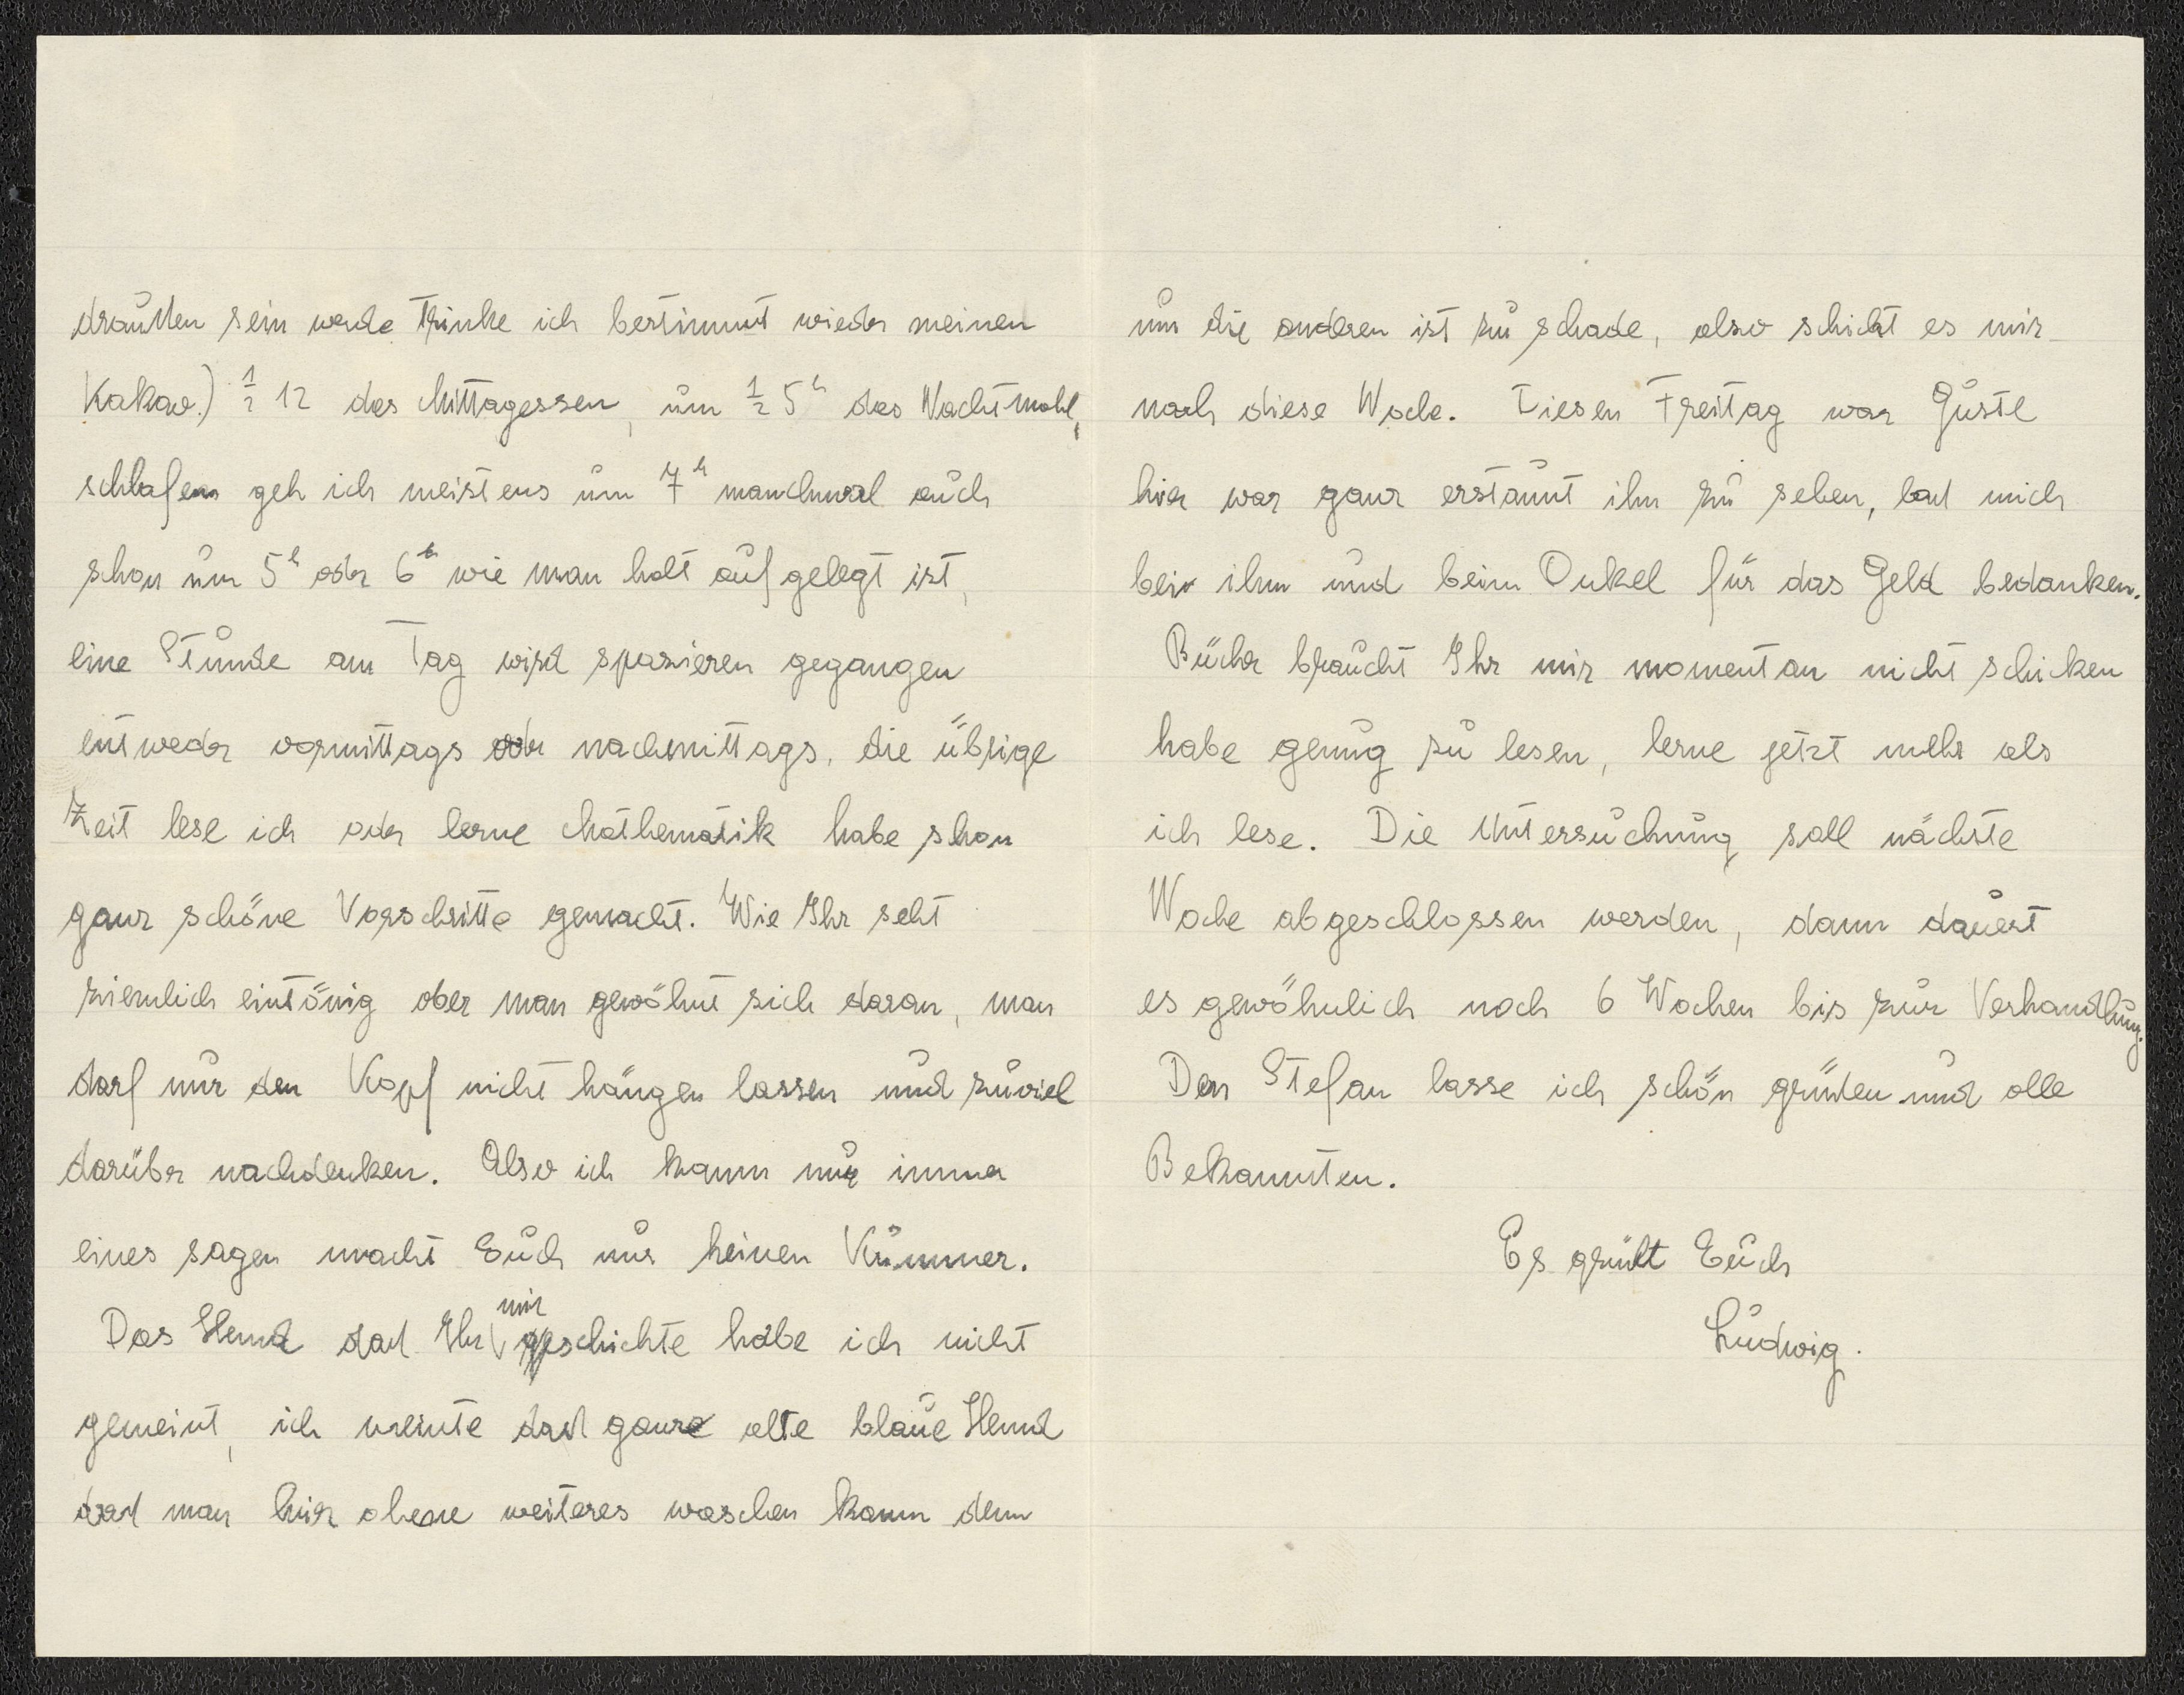 draußen sein werde trinke ich bestimmt wieder meinen
Kakao.) ½ 12 das Mittagessen, um ½ 5ʰ das Nachtmahl,
schlafen geh ich meistens um 7ʰ manchmal auch
schon um 5ʰ oder 6ʰ wie man halt aufgelegt ist,
eine Stunde am Tag wird spazieren gegangen
entweder vormittags oder nachmittags, die übrige
Zeit lese ich oder lerne Mathematik habe schon
ganz schöne Vorschritte gemacht. Wie Ihr seht
ziemlich eintönig aber man gewöhnt sich daran, man
darf nur den Kopf nicht hängen lassen und zuviel
darüber nachdenken. Also ich kann nur immer
eines sagen macht Euch nur keinen Kummer.
Das Hemd daß Ihr mir geschichte habe ich nicht
gemeint, ich meinte daß ganze alte blaue Hemd
daß man hier ohene weiteres waschen kann denn
um die anderen ist zu schade, also schickt es mir
noch diese Woche. Diesen Freitag war Gustl
hier war ganz erstaunt ihn zu sehen, laß mich
bei ihm und beim Onkel für das Geld bedanken.
Bücher braucht Ihr mir momentan nicht schicken
habe genug zu lesen, lerne jetzt mehr als
ich lese. Die Untersuchung soll nächste
Woche abgeschlossen werden, dann dauert
es gewöhnlich noch 6 Wochen bis zur Verhandlung.
Den Stefan lasse ich schön grüßen und alle
Bekannten.
Es grüßt Euch
Ludwig.